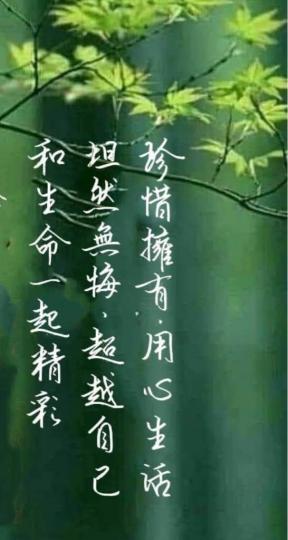 珍惜擁有，用心生活
坦然無悔，超越自己
和生命一起精彩